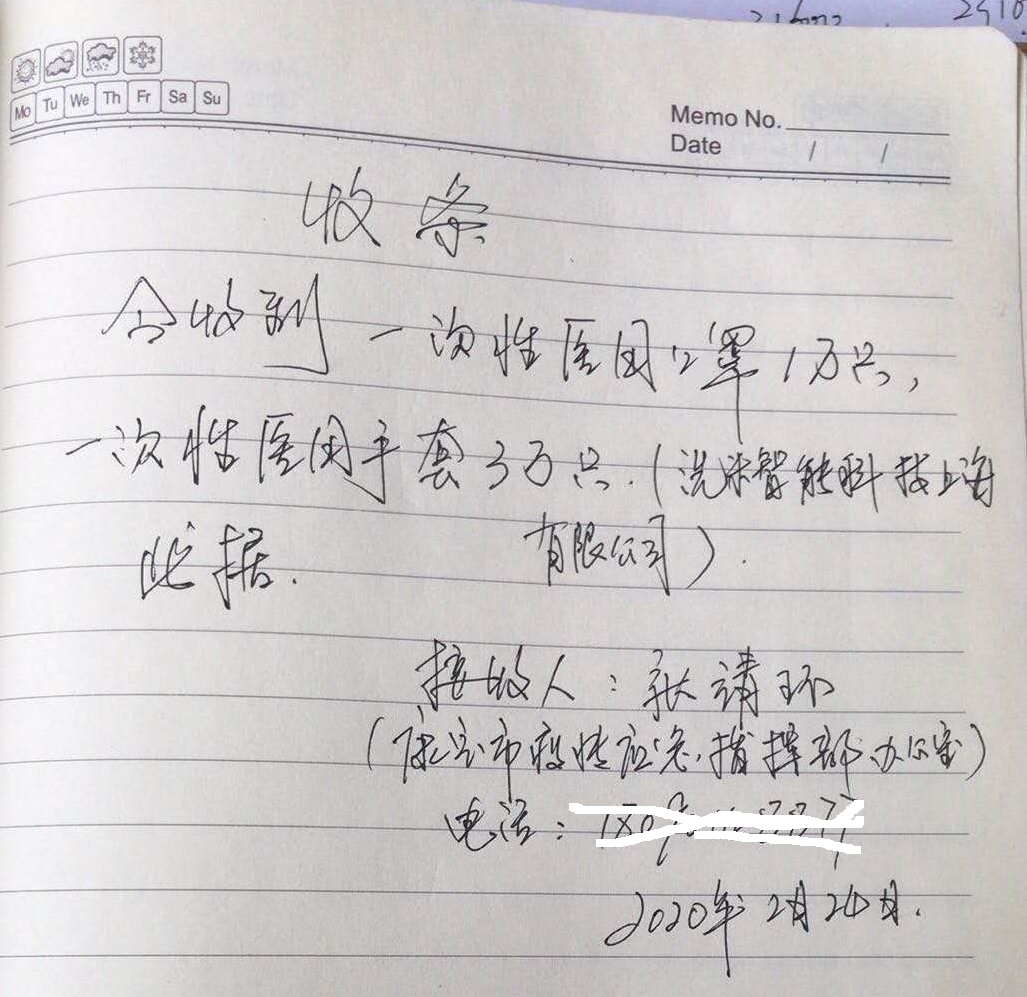 Mo Tu We Th Fr Sa Su
Memo No.
Date / /
收条
今收到一次性医用口罩1万只,
一次性医用手套3万只.(洗沐智能科技上海
有限公司).
此据.
接收人:张請环
(康定市疫情应急指挥部办公室)
电话:
2020年2月24日.